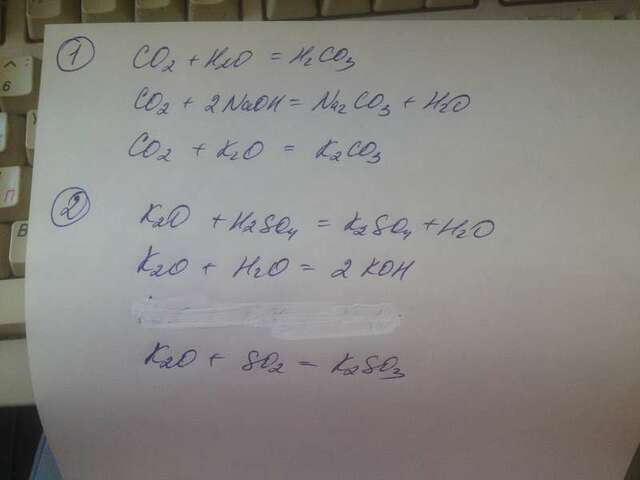 1
CO₂ + H₂O = H₂CO₃
CO₂ + 2NaOH = Na₂CO₃ + H₂O
CO₂ + K₂O = K₂CO₃
2
K₂O + H₂SO₄ = K₂SO₄ + H₂O
K₂O + H₂O = 2KOH
K₂O + SO₂ = K₂SO₃